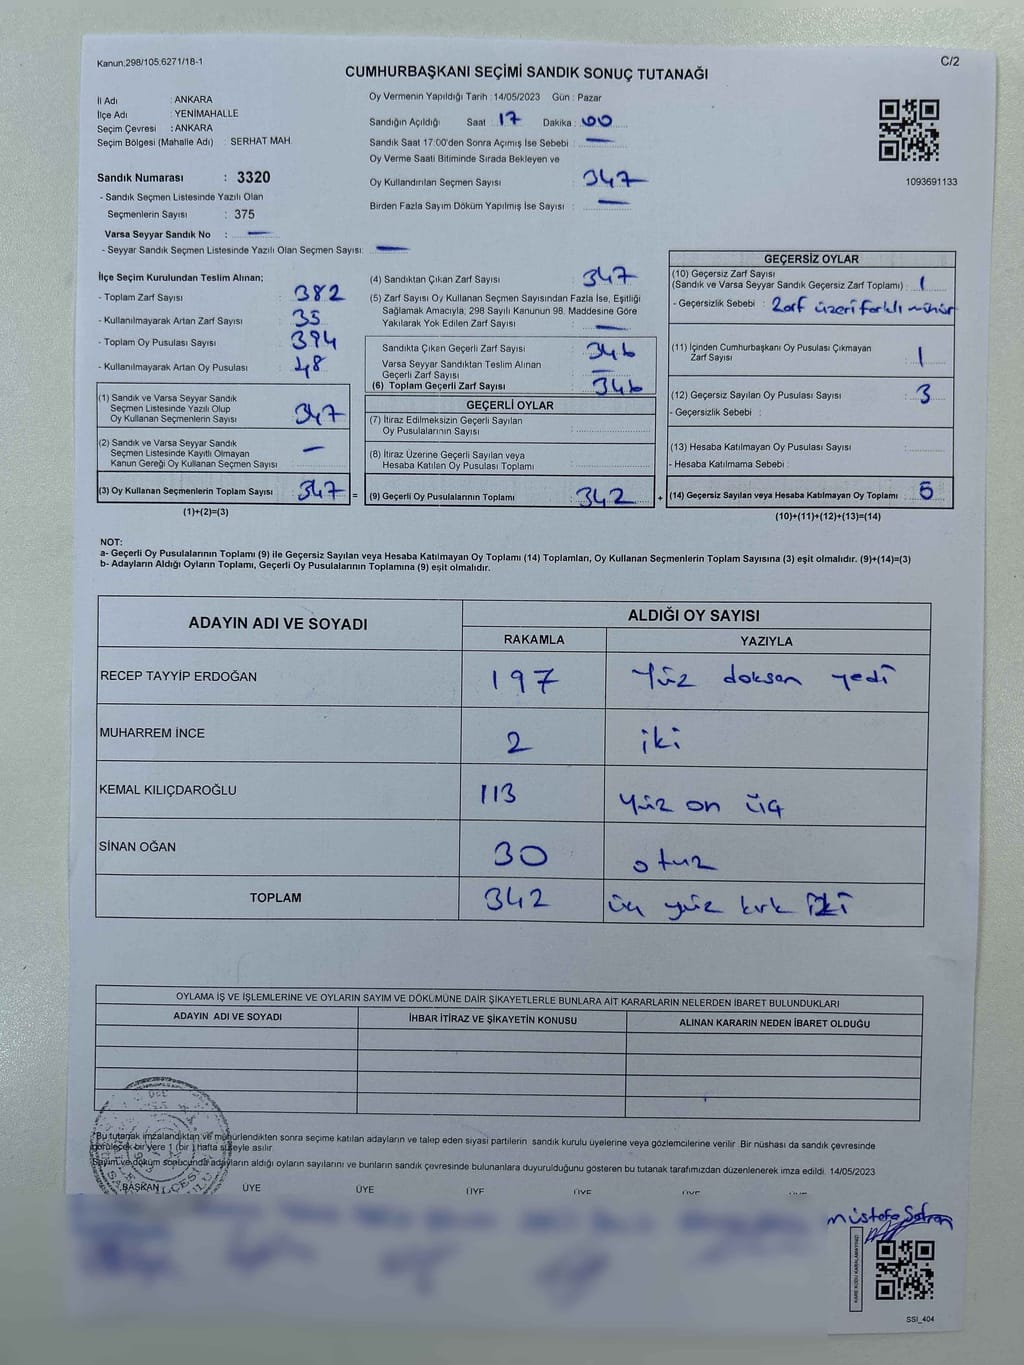 Kanun.298/105.6271/18-1
C/2
CUMHURBAŞKANI SEÇİMİ SANDIK SONUÇ TUTANAĞI
İl Adı : ANKARA
İlçe Adı : YENİMAHALLE
Seçim Çevresi : ANKARA
Seçim Bölgesi (Mahalle Adı) : SERHAT MAH.
Oy Vermenin Yapıldığı Tarih : 14/05/2023 Gün : Pazar
Sandığın Açıldığı Saat : 17 Dakika : 00
Sandık Saat 17:00'den Sonra Açımış İse Sebebi : —
Oy Verme Saati Bitiminde Sırada Bekleyen ve
Oy Kullandırılan Seçmen Sayısı : 347
Birden Fazla Sayım Döküm Yapılmış İse Sayısı : —
1093691133
Sandık Numarası : 3320
- Sandık Seçmen Listesinde Yazılı Olan
Seçmenlerin Sayısı : 375
Varsa Seyyar Sandık No : —
- Seyyar Sandık Seçmen Listesinde Yazılı Olan Seçmen Sayısı: —
İlçe Seçim Kurulundan Teslim Alınan;
- Toplam Zarf Sayısı 382
- Kullanılmayarak Artan Zarf Sayısı 35
- Toplam Oy Pusulası Sayısı 394
- Kullanılmayarak Artan Oy Pusulası 48
(1) Sandık ve Varsa Seyyar Sandık
Seçmen Listesinde Yazılı Olup
Oy Kullanan Seçmenlerin Sayısı 347
(2) Sandık ve Varsa Seyyar Sandık
Seçmen Listesinde Kayıtlı Olmayan
Kanun Gereği Oy Kullanan Seçmen Sayısı —
(3) Oy Kullanan Seçmenlerin Toplam Sayısı 347 =
(1)+(2)=(3)
(4) Sandıktan Çıkan Zarf Sayısı 347
(5) Zarf Sayısı Oy Kullanan Seçmen Sayısından Fazla İse, Eşitliği
Sağlamak Amacıyla, 298 Sayılı Kanunun 98. Maddesine Göre
Yakılarak Yok Edilen Zarf Sayısı : —
Sandıkta Çıkan Geçerli Zarf Sayısı : 346
Varsa Seyyar Sandıktan Teslim Alınan
Geçerli Zarf Sayısı : —
(6) Toplam Geçerli Zarf Sayısı : 346
GEÇERLİ OYLAR
(7) İtiraz Edilmeksizin Geçerli Sayılan
Oy Pusulalarının Sayısı :
(8) İtiraz Üzerine Geçerli Sayılan veya
Hesaba Katılan Oy Pusulası Toplamı :
(9) Geçerli Oy Pusulalarının Toplamı : 342 +
GEÇERSİZ OYLAR
(10) Geçersiz Zarf Sayısı
(Sandık ve Varsa Seyyar Sandık Geçersiz Zarf Toplamı) : 1
- Geçersizlik Sebebi : Zarf üzeri farklı mühür
(11) İçinden Cumhurbaşkanı Oy Pusulası Çıkmayan
Zarf Sayısı 1
(12) Geçersiz Sayılan Oy Pusulası Sayısı 3
- Geçersizlik Sebebi :
(13) Hesaba Katılmayan Oy Pusulası Sayısı
- Hesaba Katılmama Sebebi :
(14) Geçersiz Sayılan veya Hesaba Katılmayan Oy Toplamı 5
(10)+(11)+(12)+(13)=(14)
NOT:
a- Geçerli Oy Pusulalarının Toplamı (9) ile Geçersiz Sayılan veya Hesaba Katılmayan Oy Toplamı (14) Toplamları, Oy Kullanan Seçmenlerin Toplam Sayısına (3) eşit olmalıdır. (9)+(14)=(3)
b- Adayların Aldığı Oyların Toplamı, Geçerli Oy Pusulalarının Toplamına (9) eşit olmalıdır.
ADAYIN ADI VE SOYADI
ALDIĞI OY SAYISI
RAKAMLA YAZIYLA
RECEP TAYYİP ERDOĞAN 197 Yüz doksan yedi
MUHARREM İNCE 2 iki
KEMAL KILIÇDAROĞLU 113 Yüz on üç
SİNAN OĞAN 30 otuz
TOPLAM 342 üç yüz kırk iki
OYLAMA İŞ VE İŞLEMLERİNE VE OYLARIN SAYIM VE DÖKÜMÜNE DAİR ŞİKAYETLERLE BUNLARA AİT KARARLARIN NELERDEN İBARET BULUNDUKLARI
ADAYIN ADI VE SOYADI İHBAR İTİRAZ VE ŞİKAYETİN KONUSU ALINAN KARARIN NEDEN İBARET OLDUĞU
*Bu tutanak imzalandıktan ve mühürlendikten sonra seçime katılan adayların ve talep eden siyasi partilerin sandık kurulu üyelerine veya gözlemcilerine verilir. Bir nüshası da sandık çevresinde
görülecek bir yere 1 (bir) hafta süreyle asılır.
Sayım ve döküm sonucunda adayların aldığı oyların sayılarını ve bunların sandık çevresinde bulunanlara duyurulduğunu gösteren bu tutanak tarafımızdan düzenlenerek imza edildi. 14/05/2023
BAŞKAN ÜYE ÜYE ÜYE ÜYE ÜYE ÜYE
KARE KODU KARALAMAYINIZ
SSI_404